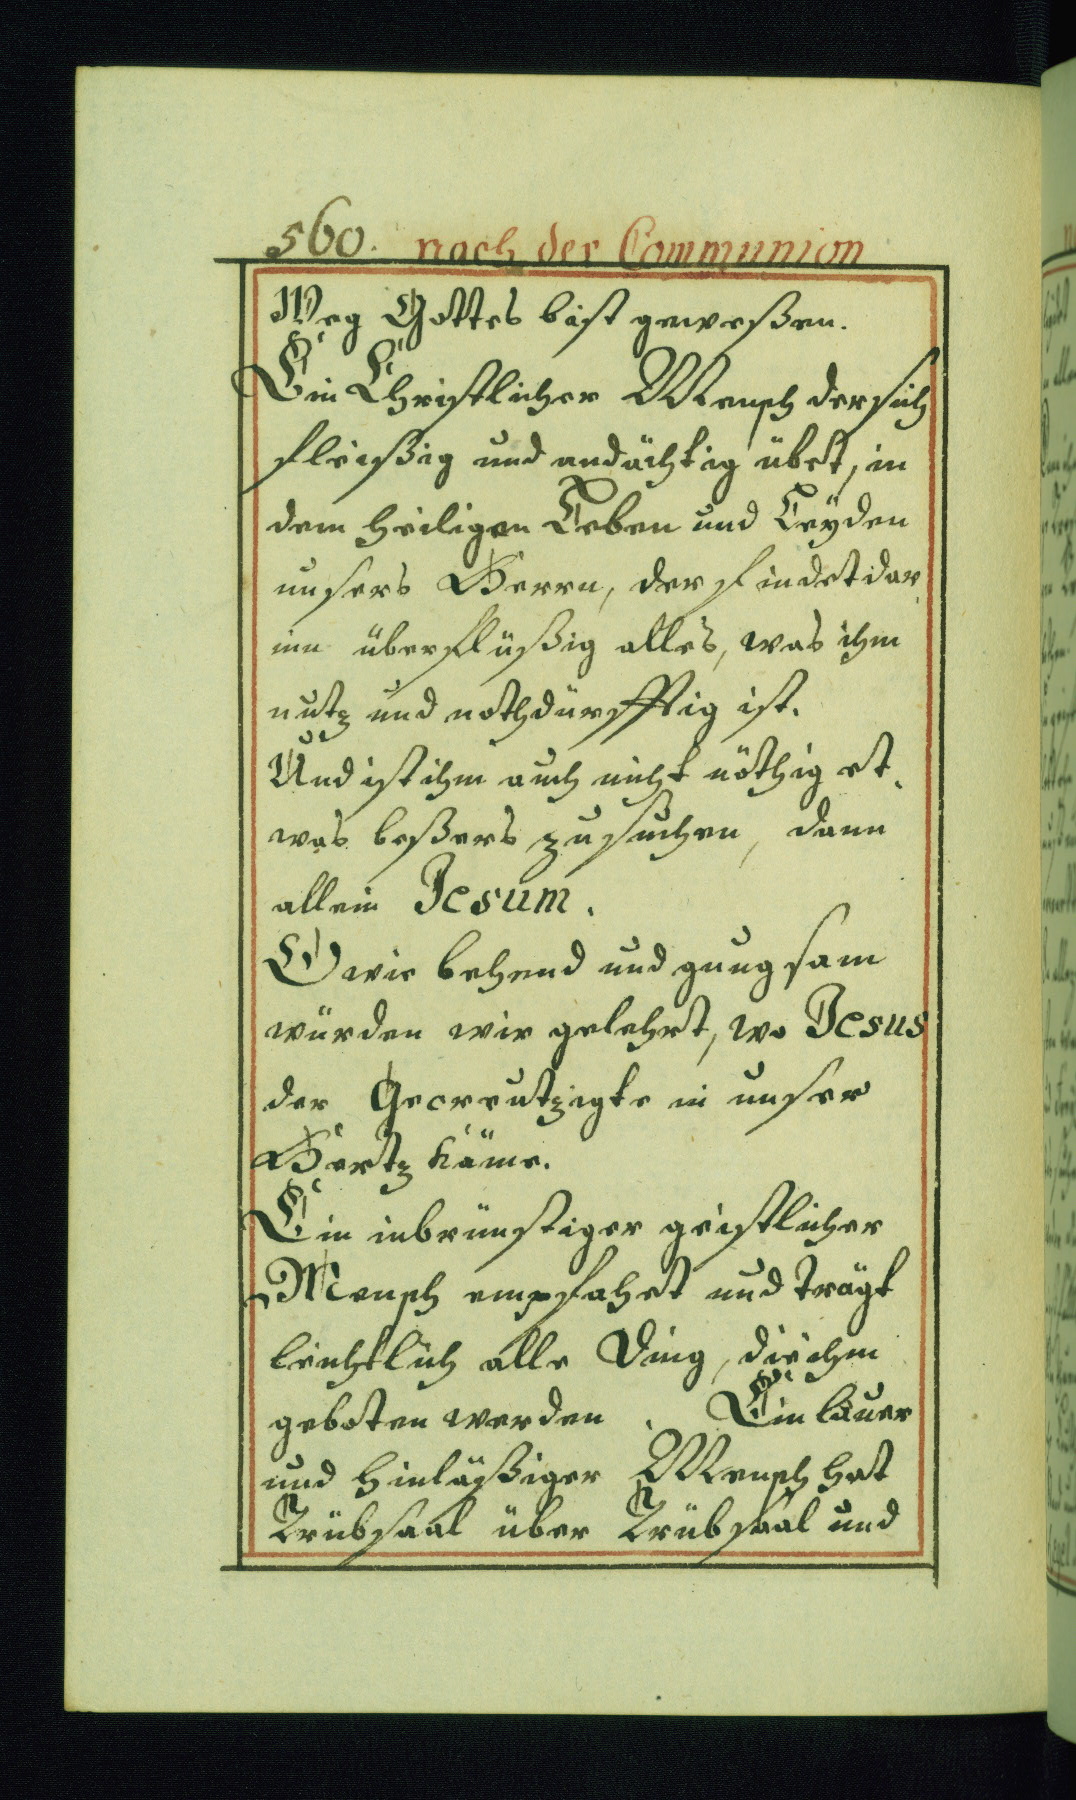 560. nach der Communion
Weg Gottes bist geweßen.
Ein Christlicher Mensch der sich
fleißig und andächtig übet, in
dem heiligen Leben und Leyden
unsers Herrn, der findet dar,
inn überflüßig alles, was ihm
nutz und nothdürfftig ist.
Und ist ihm auch nicht nöthig et,
was beßers zu suchen, dann
allein Jesum.
O wie behend und gnugsam
würden wir gelehrt, wo Jesus
der Gecreutzigte in unser
Hertz käme.
Ein inbrünstiger geistlicher
Mensch empfahet und trägt
leichtlich alle Ding, die ihm
geboten werden. Ein lauer
und hinläßiger Mensch hat
Trübsaal über Trübsaal und